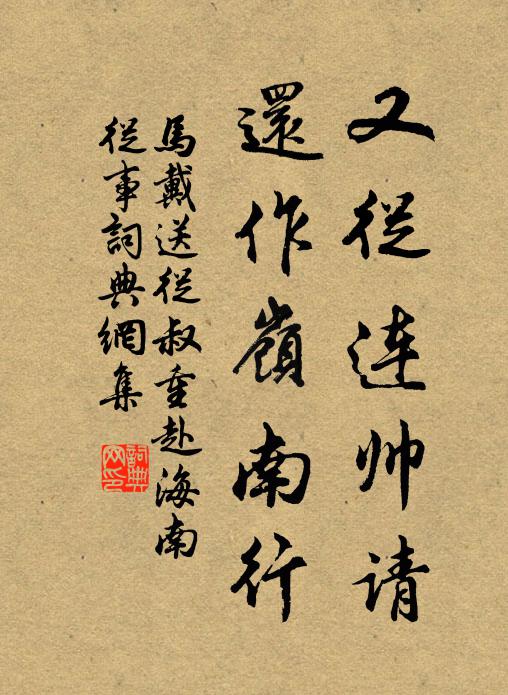 又從连帅请
還作嶺南行
馬戴送從叔重赴海南
從事詞典網集
詞典
网印